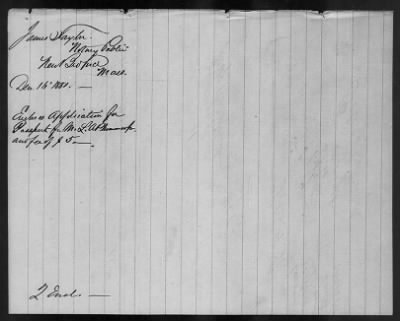 James Taylor
Notary Public
New Bedford
Mass.
Dec 16" 1880. —
Encloses Application for
Passport for Mr. L. A.
and fee of $5—.
2 Encl. —